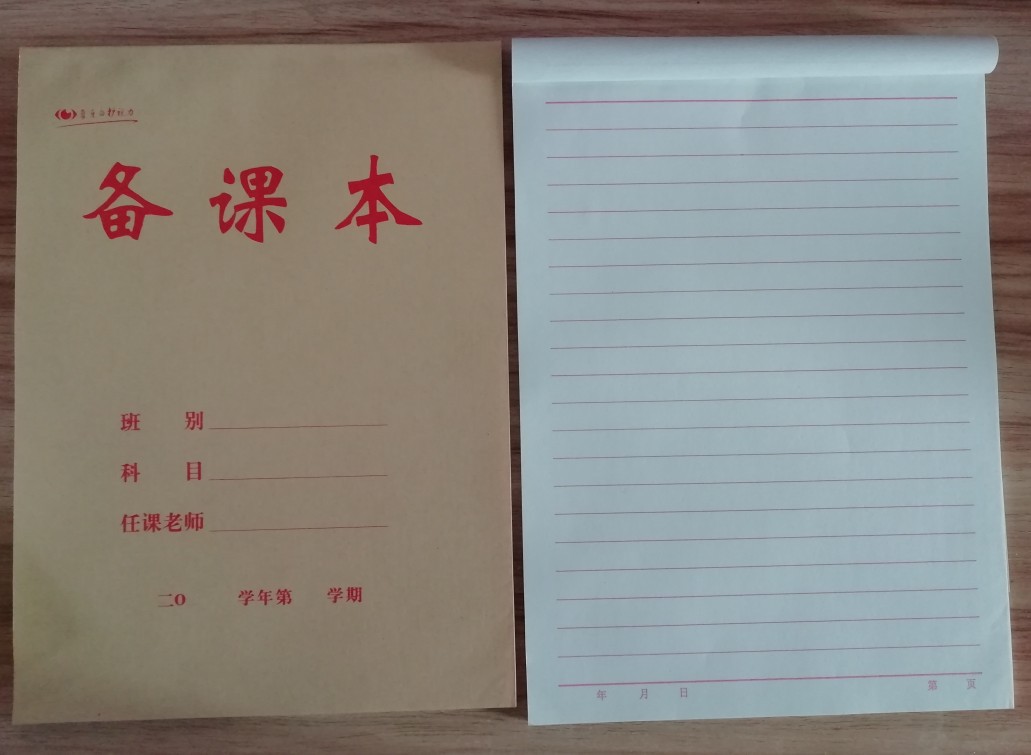 备课本
班 别
科 目
任课老师
二O 学年第 学期
年 月 日 第 页